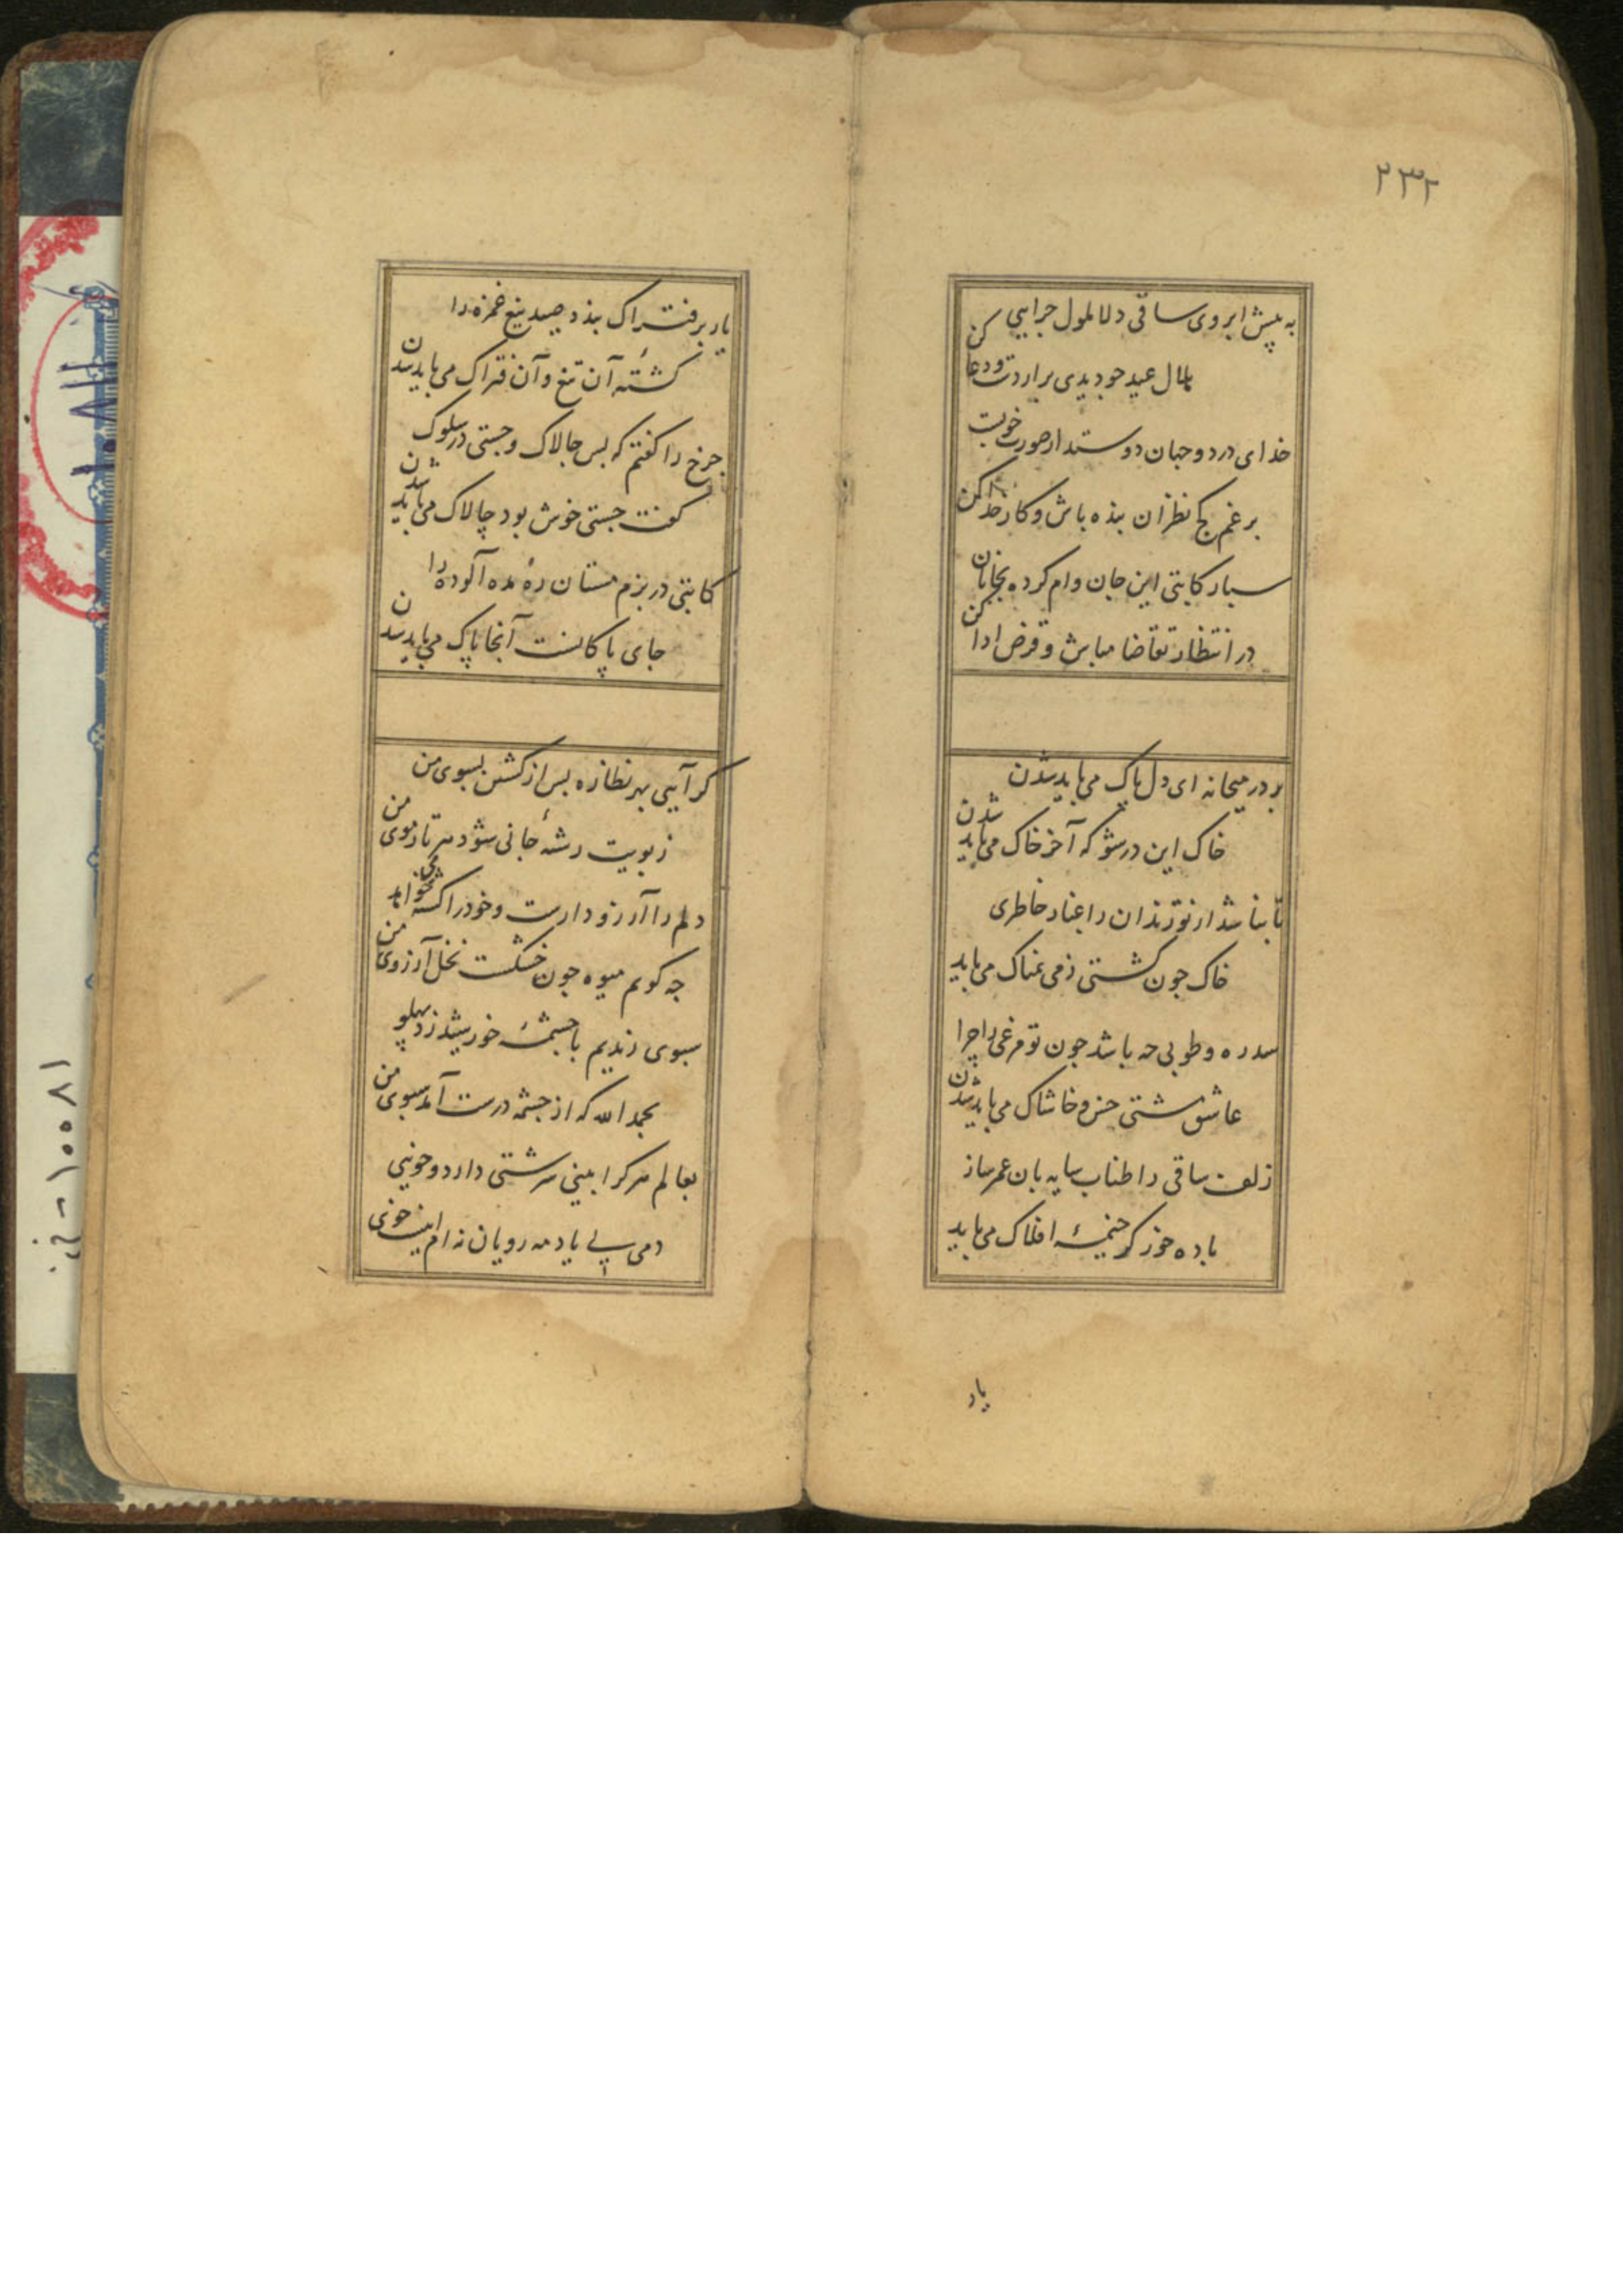 ۲۳۲
به پیش ابروی ساقی دلا ملول جرایی
هلال عید جو دیدی برار دست و دعا کن
خدای در دو جهان دوستدار صورت خوبست
برغم کج نظران بنده باش و کار خدا کن
سپار کاتبی این جان وام کرده بجانان
در انتظار تقاضا مباش و قرض ادا کن
بر در میخانه ای دل پاک می باید شدن
خاک این در شو که آخر خاک می باید شدن
تا نباشد از تو رندان را غبار خاطری
خاک جون کشتی ز می نمناک می باید
سدره و طوبی جه باشد جون تو مرغی را چرا
عاشق مشتی خس و خاشاک می باید شدن
زلف ساقی را طناب سایه بان عمر ساز
باده خور کر خیمهٔ افلاک می باید
یار
یار بر فتراک بندد صید تیغ غمزه را
کشتهٔ آن تیغ و آن فتراک می باید شدن
جرخ را کفتم که بس جالاک و جستی در سلوک
کفت جستی خوش بود چالاک می باید شدن
کاتبی در بزم مستان ره مده آلوده را
جای پاکانست آنجا پاک می باید شدن
کر آیی بهر نظاره بس از کشتن بسوی من
ز بویت رشتهٔ جانی شود هر تار موی من
دلم را آرزو دارست و خود را کشته میخواهد
جه کویم میوه جون خشکست نخل آرزوی من
سبوی زندیم با جشمهٔ خورشید زد پهلو
بحمد الله که از جشمه درست آمد سبوی من
بعالم هر کرا بینی سرشتی دارد و خویی
دمی بی یاد مه رویان نه ام اینست خوی
۱۰۵۸۱ - خ